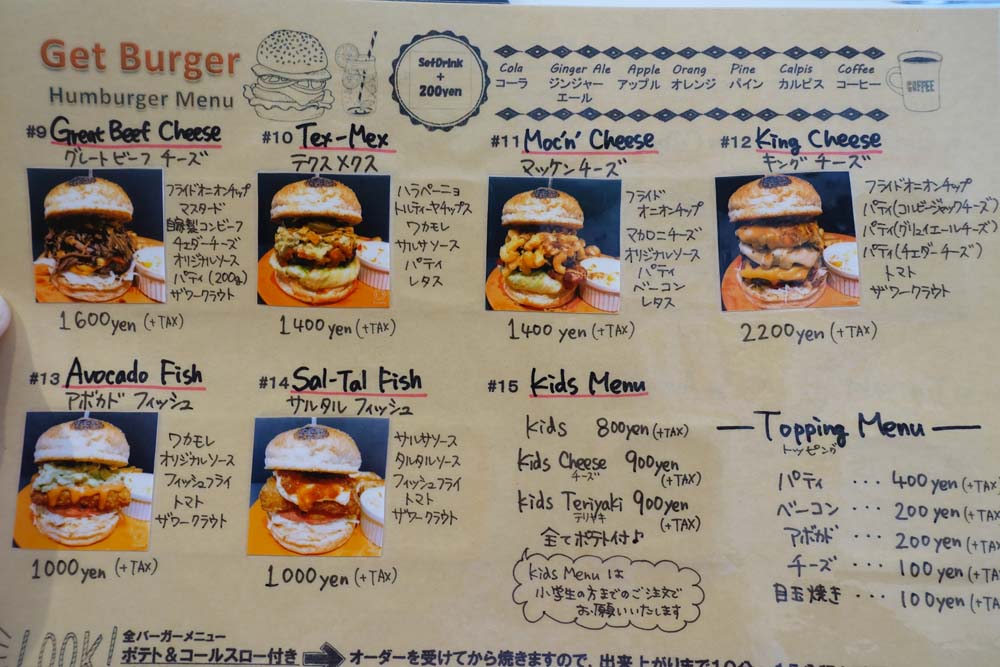 Get Burger
Humburger Menu
SetDrink
+
200yen
Cola
コーラ
Ginger Ale
ジンジャー
エール
Apple
アップル
Orang
オレンジ
Pine
パイン
Calpis
カルピス
Coffee
コーヒー
COFFEE
#9 Great Beef Cheese
グレートビーフ チーズ
フライドオニオンチップ
マスタード
自家製コンビーフ
チェダーチーズ
オリジナルソース
パティ(200g)
ザワークラウト
1600yen (+TAX)
#10 Tex-Mex
テクスメクス
ハラペーニョ
トルティーヤチップス
ワカモレ
サルサソース
パティ
レタス
1400yen (+TAX)
#11 Moc'n' Cheese
マッケンチーズ
フライド
オニオンチップ
マカロニチーズ
オリジナルソース
パティ
ベーコン
レタス
1400yen (+TAX)
#12 King Cheese
キングチーズ
フライドオニオンチップ
パティ(コルビージャックチーズ)
パティ(グリュイエールチーズ)
パティ(チェダーチーズ)
トマト
ザワークラウト
2200yen (+TAX)
#13 Avocado Fish
アボカド フィッシュ
ワカモレ
オリジナルソース
フィッシュフライ
トマト
ザワークラウト
1000yen (+TAX)
#14 Sal-Tal Fish
サルタルフィッシュ
サルサソース
タルタルソース
フィッシュフライ
トマト
ザワークラウト
1000yen (+TAX)
#15 Kids Menu
Kids 800yen (+TAX)
Kids Cheese 900yen
チーズ (+TAX)
Kids Teriyaki 900yen
テリヤキ (+TAX)
全てポテト付♪
Kids Menu は
小学生の方までのご注文で
お願いいたします
Topping Menu
トッピング
パティ ··· 400yen (+TAX)
ベーコン ··· 200yen (+TAX
アボカド ··· 200yen (+TAX
チーズ ··· 100yen (+TAX
目玉焼き ··· 100yen (+TA
LOOK!
全バーガーメニュー
ポテト&コールスロー付き
オーダーを受けてから焼きますので、出来上がりまで